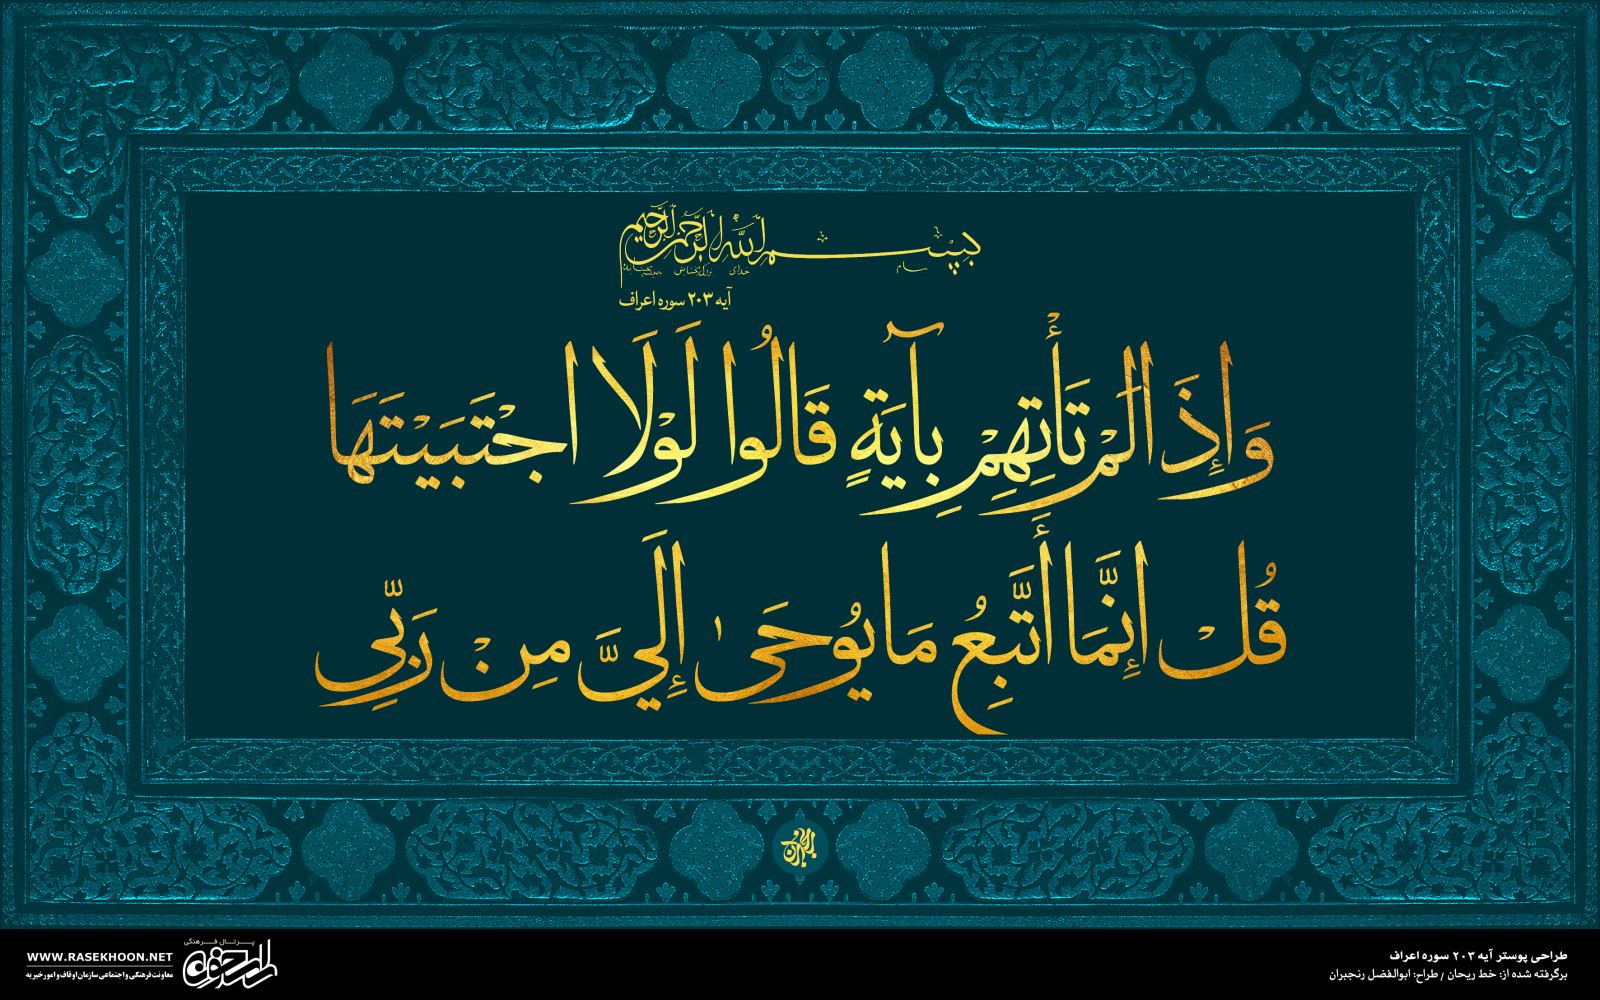 بسم الله الرحمن الرحیم
آیه ۲۰۳ سوره اعراف
وَإِذَا لَمْ تَأْتِهِمْ بِآيَةٍ قَالُوا لَوْلَا اجْتَبَيْتَهَا
قُلْ إِنَّمَا أَتَّبِعُ مَا يُوحَىٰ إِلَيَّ مِنْ رَبِّي
طراحی پوستر آیه ۲۰۳ سوره اعراف
برگرفته شده از: خط ریحان / طراح: ابوالفضل رنجبران
پرتال فرهنگی
راسخون
WWW.RASEKHOON.NET
معاونت فرهنگی و اجتماعی سازمان اوقاف و امور خیریه